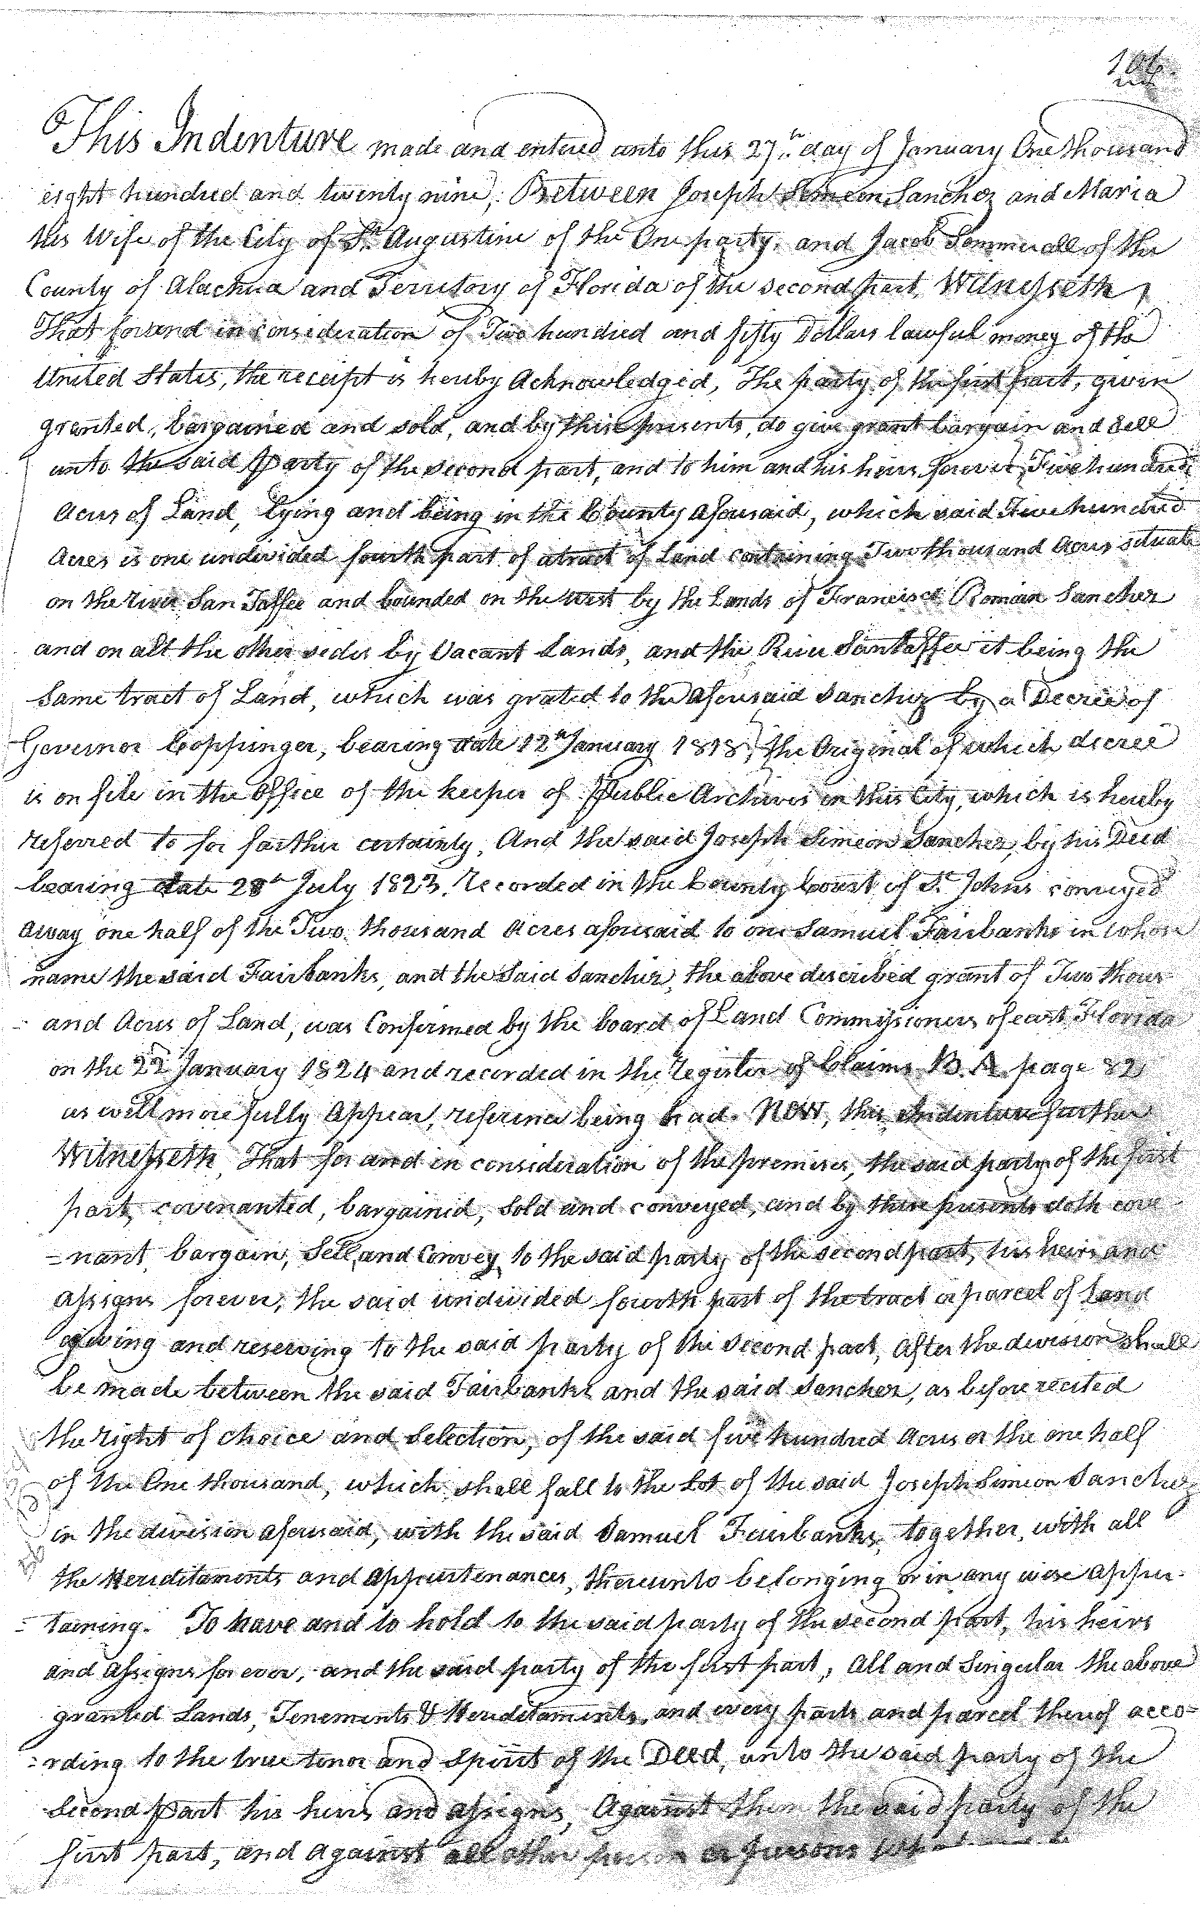 106.
This Indenture made and entered unto this 27th day of January One thousand
eight hundred and twenty nine, Between Joseph Simeon Sanchez and Maria
his Wife of the City of St Augustine of the One party, and Jacob Sommerall of the
County of Alachua and Territory of Florida of the second part, Witnesseth,
That for and in consideration of Two hundred and fifty Dollars lawful money of the
United States, the receipt is hereby Acknowledged, The party of the first part, given
granted, bargained and sold, and by these presents, do give grant bargain and Sell
unto the said party of the second part, and to him and his heirs forever, Five hundred
Acres of Land, lying and being in the County aforesaid, which said Five hundred
Acres is one undivided fourth part of a tract of Land containing Two thousand Acres situate
on the river San Taffee and bounded on the west by the Lands of Francisco Romain Sanchez
and on all the other sides by Vacant Lands, and the River Santaffee it being the
Same tract of Land, which was grated to the aforesaid Sanchez by a Decree of
Governor Coppinger, bearing date 12th January 1818, the Original of which decree
is on file in the Office of the keeper of Public Archives in this City, which is hereby
referred to for farther certainty, And the said Joseph Simeon Sanchez, by his Deed
bearing date 28th July 1823. recorded in the County Court of St Johns conveyed
away one half of the Two thousand Acres aforesaid to one Samuel Fairbanks in whose
name the said Fairbanks, and the Said Sanchez, the above described grant of Two thous
and Acres of Land, was Confirmed by the board of Land Commissioners of east Florida
on the 22d January 1824 and recorded in the register of Claims B. A. page 82
as will more fully Appear, reference being had. Now, this Indenture further
Witnesseth, That for and in consideration of the premises, the said party of the first
part, covenanted, bargained, sold and conveyed, and by these presents doth cove
=nant, bargain, Sell, and Convey, to the said party of the second part, his heirs and
Assigns forever, the said undivided fourth part of the tract or parcel of Land
giving and reserving to the said party of the second part, After the division shall
be made between the said Fairbanks and the said Sanchez, as before recited
the right of choice and selection, of the said five hundred Acres or the one half
of the One thousand, which shall fall to the Lot of the said Joseph Simeon Sanchez
in the division aforesaid, with the said Samuel Fairbanks, together, with all
the Hereditaments and appurtenances, thereunto belonging or in any wise apper-
=taining. To have and to hold to the said party of the second part, his heirs
and Assigns forever, and the said party of the first part, All and Singular the above
granted Lands, Tenements & Hereditaments, and every parts and parcel thereof acco=
=rding to the true tenor and spirit of the Deed, unto the said party of the
second part his heirs and assigns, Against them the said party of the
first part, and against all other person or persons